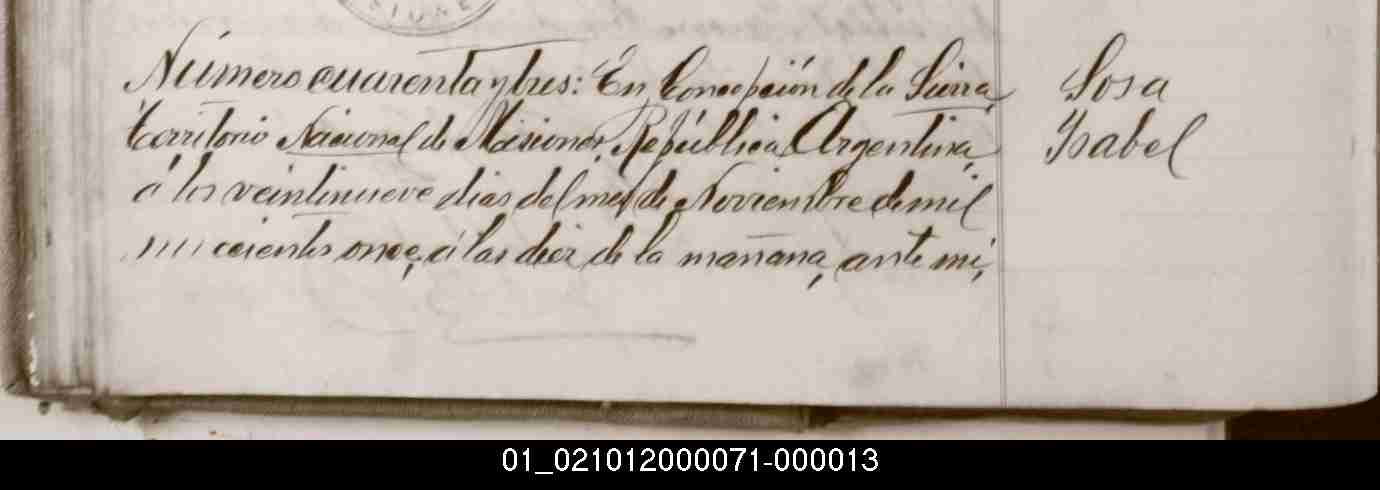 SIONES
Número cuarenta y tres: En Concepción de la Sierra,
Territorio Nacional de Misiones, República Argentina,
á los veintinueve dias del mes de Noviembre de mil
novecientos once, á las diez de la mañana, ante mi,
Sosa
Ysabel
01_021012000071-000013